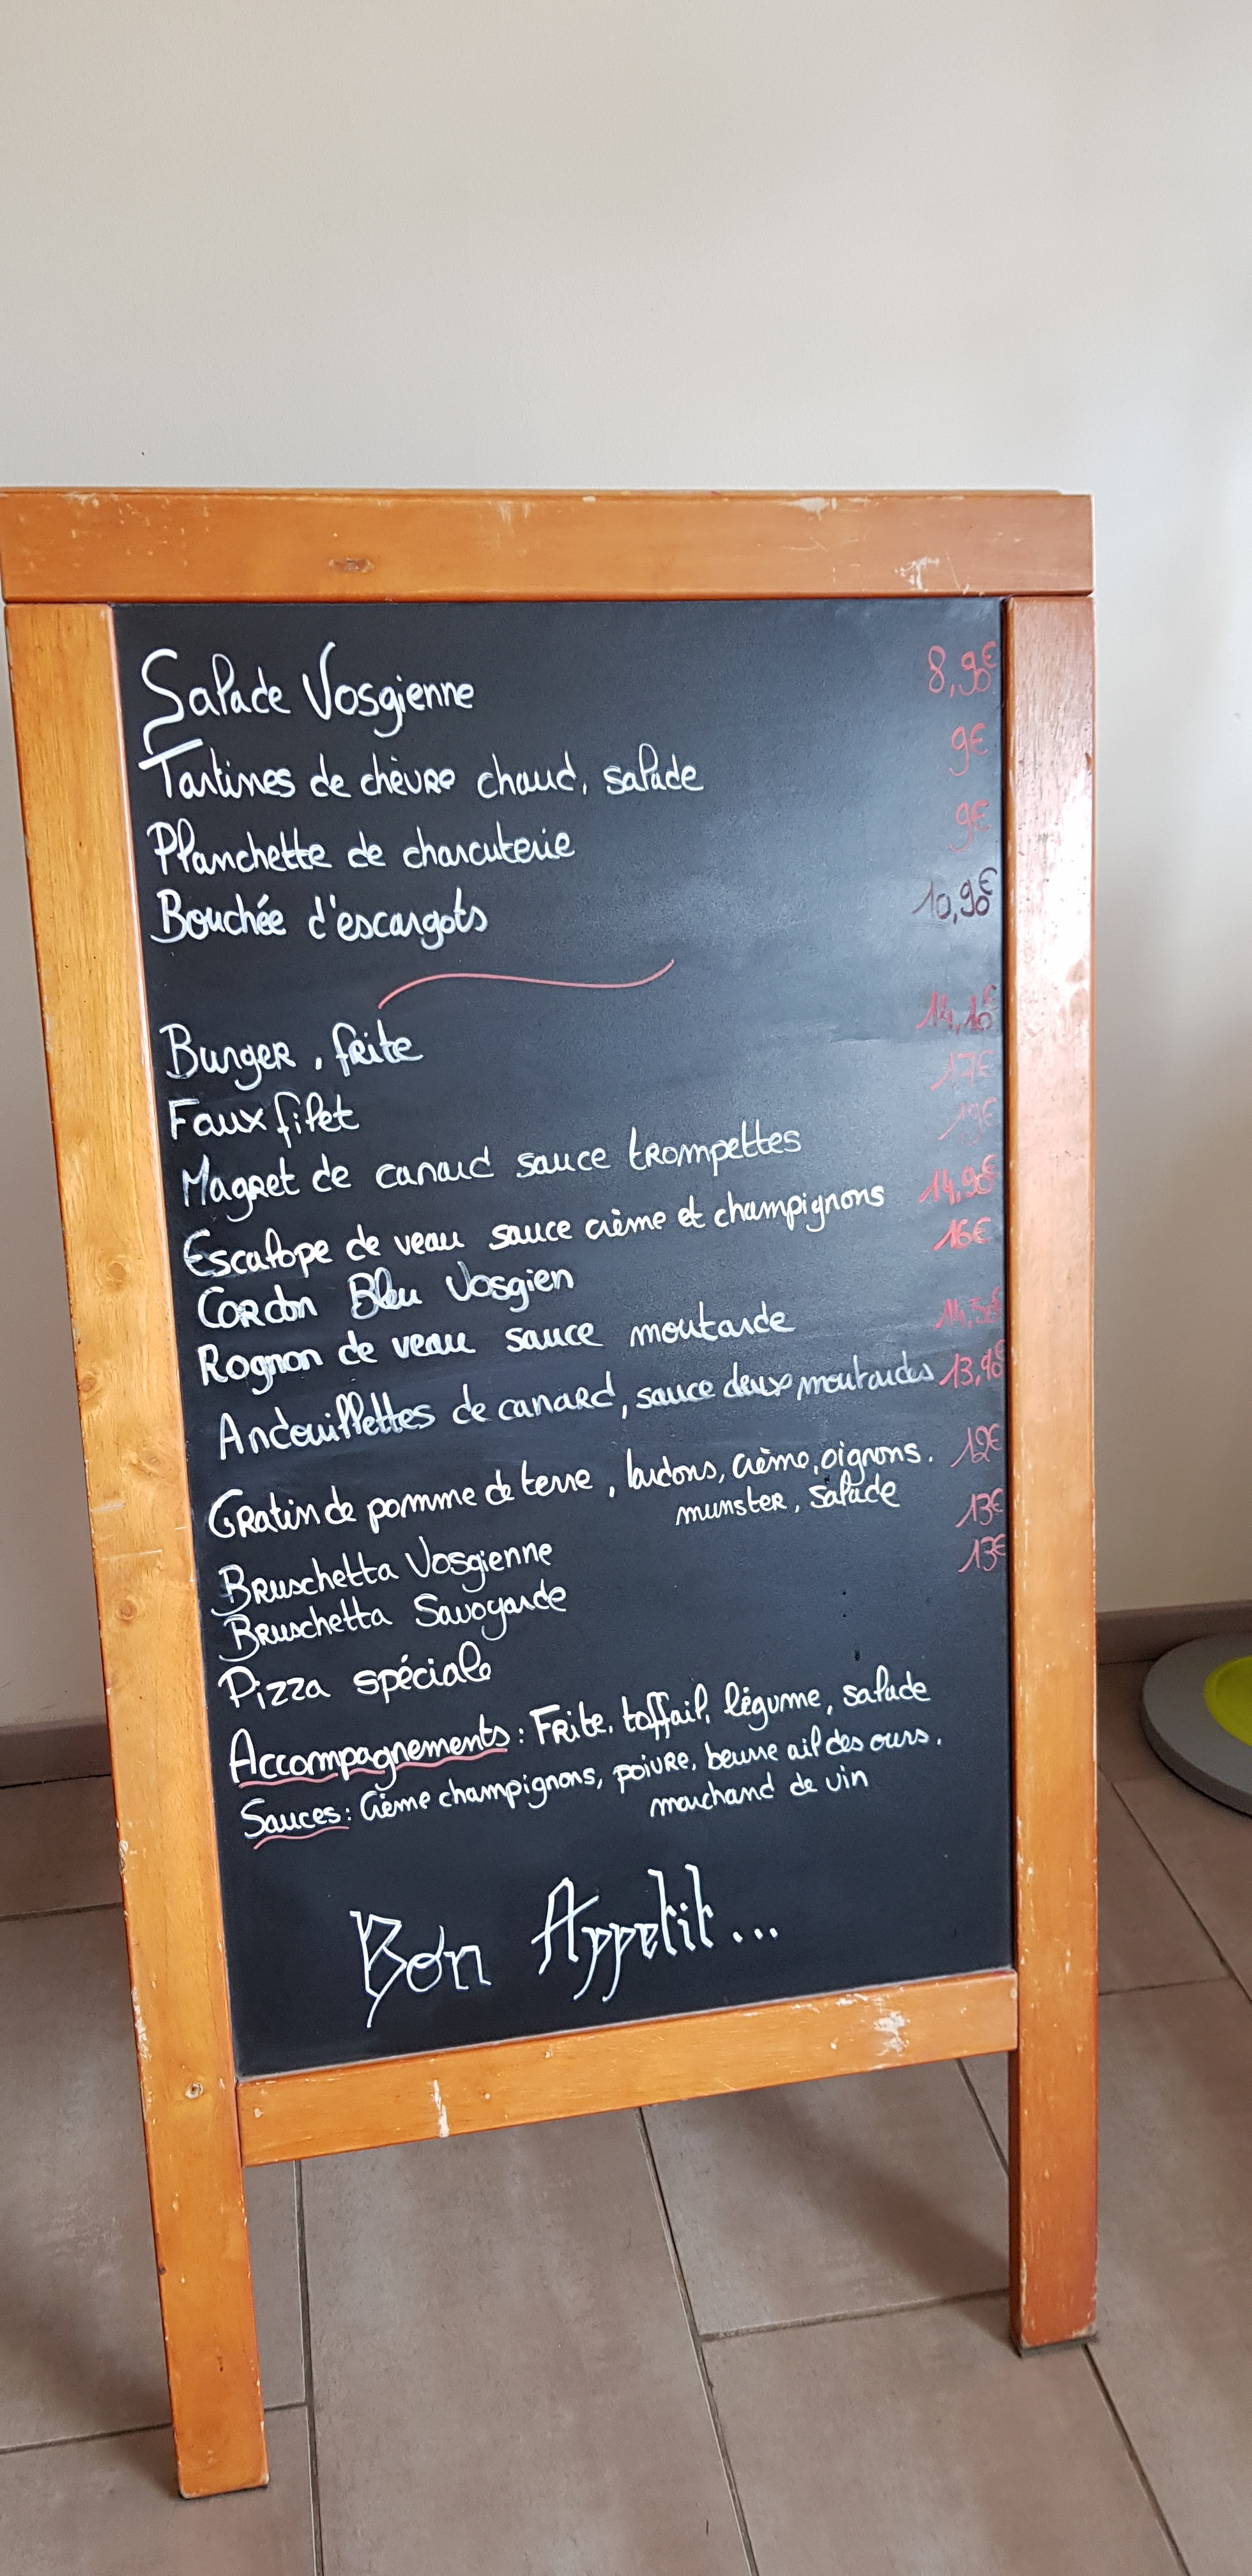 Salade Vosgienne 8,90€
Tartines de chèvre chaud, salade 9€
Planchette de charcuterie 9€
Bouchée d'escargots 10,90€
Burger, frite 14,10€
Faux filet 17€
Magret de canard sauce trompettes 19€
Escalope de veau sauce crème et champignons 14,90€
Cordon Bleu Vosgien 16€
Rognon de veau sauce moutarde
Andouillettes de canard, sauce deux moutardes 13,90€
Gratin de pomme de terre, lardons, crème, oignons. 12€
munster, salade
Bruschetta Vosgienne 13€
Bruschetta Savoyarde 13€
Pizza spéciale
Accompagnements : Frite, toffail, légume, salade
Sauces : Crème champignons, poivre, beurre ail des ours.
marchand de vin
Bon Appetit...